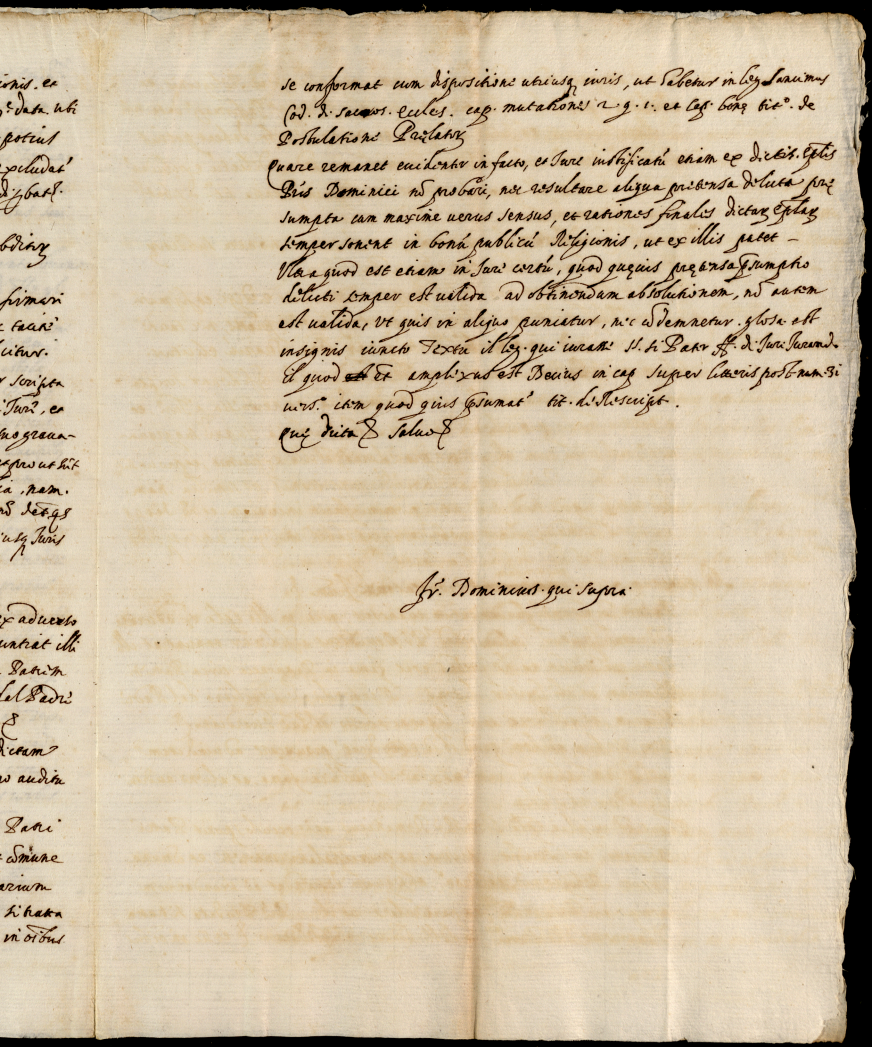 ionis. et
data. ubi
potius
excludat'
bditur
firmari
tacite'
citur.
r scripta
Jure', et
mograua-
et prout sūt
ia, nam.
usq Juris
ex aduerso
untiat illi
Patrem
del Padre
dictam
o auditu
Patri
cōmune
arium
in oībus
se conformat cum dispositione utriusq iuris, ut habetur in leg. Sancimus
Cod. de sacros. eccles. cap. mutationes 2. q. 1. et cap. bonę tit.o de
Postulatione Prelator
Quare remanet euidenter in facto, et Jure iustificatū etiam ex dictis. Eplis
Pris Dominici nō probari, nec resultare aliqua pretensa delicta prę
sumpta cum maxime uerus sensus, et rationes finales dictar Eplar
semper sonent in bonū publicū Religionis, ut ex illis patet -
Ultra quod est etiam in Jure certū, quod quęuis pretensa psumptio
delicti semper est ualida ad obtinendam absolutionem, nō autem
est ualida, ut quis in aliquo puniatur, nec cōdemnetur. glosa est
insignis iuncto Textu il leg. qui iurasse §§. si Pater ff. de Jure Jurand.
il quod et amplexus est Decius in cap. super litteris post num. 31
uers.o item quod quis psumat' tit. de Rescript.
Quę dicta salvo
Fr. Dominicus. qui supra.